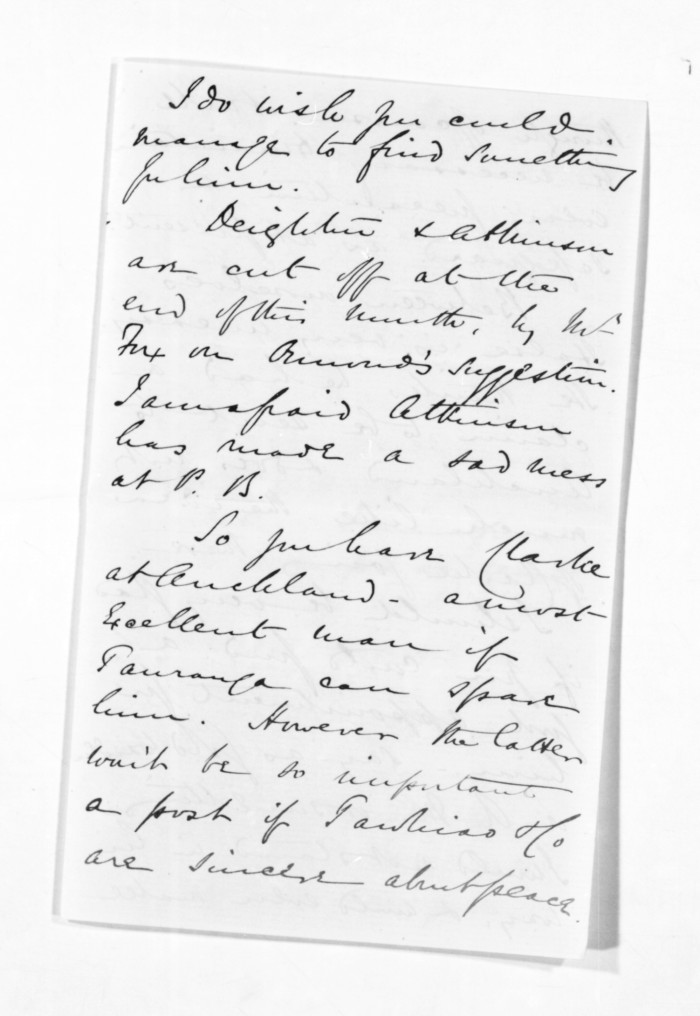 I do wish you could
manage to find something
for him.
Deighton & Atkinson
are cut off at the
end of this month, by Mr
Fox on Ormond's suggestion.
I am afraid Atkinson
has made a sad mess
at P. B.
So you have Clarke
at Auckland - a most
excellent man if
Tauranga can spare
him. However the latter
won't be so important
a post if Tawhiao & Co
are sincere about peace.